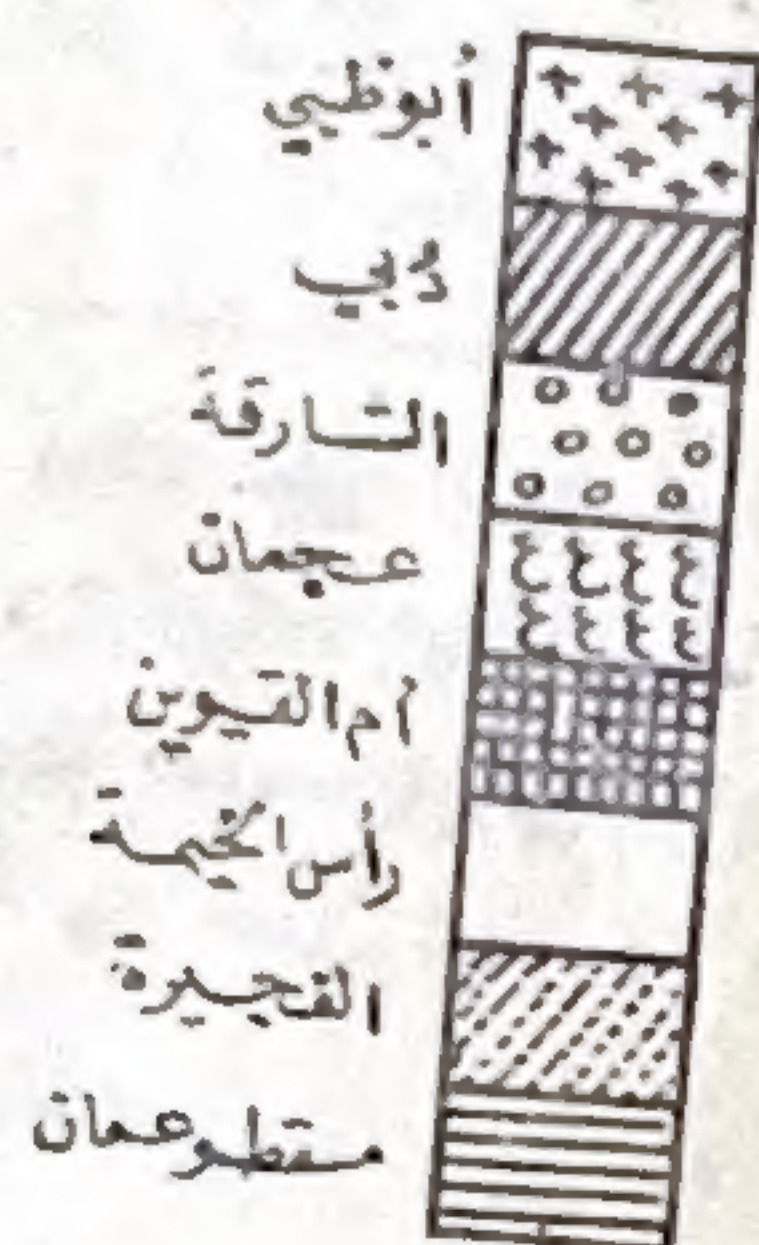 أبوظبي
دُبي
الشارقة
عجمان
أم القيوين
رأس الخيمة
الفجيرة
مسقط وعمان